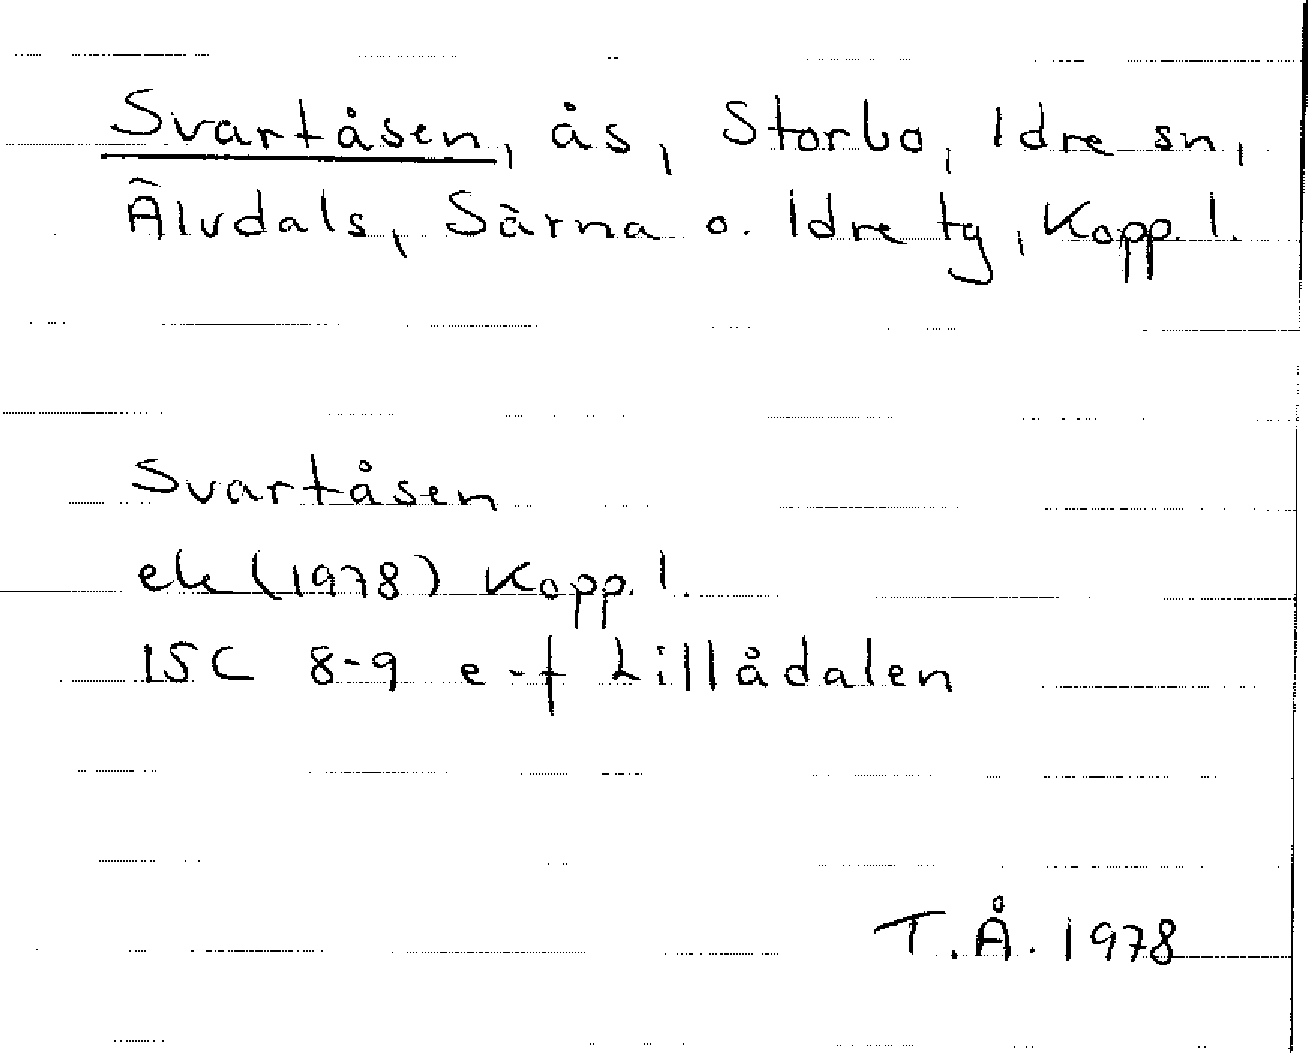 Svartåsen, ås, Storbo, Idre sn,
Älvdals, Särna o. Idre tg, Kopp. l.
Svartåsen
ek (1978) Kopp. l.
15C 8-9 e-f Lillådalen
T.Å. 1978